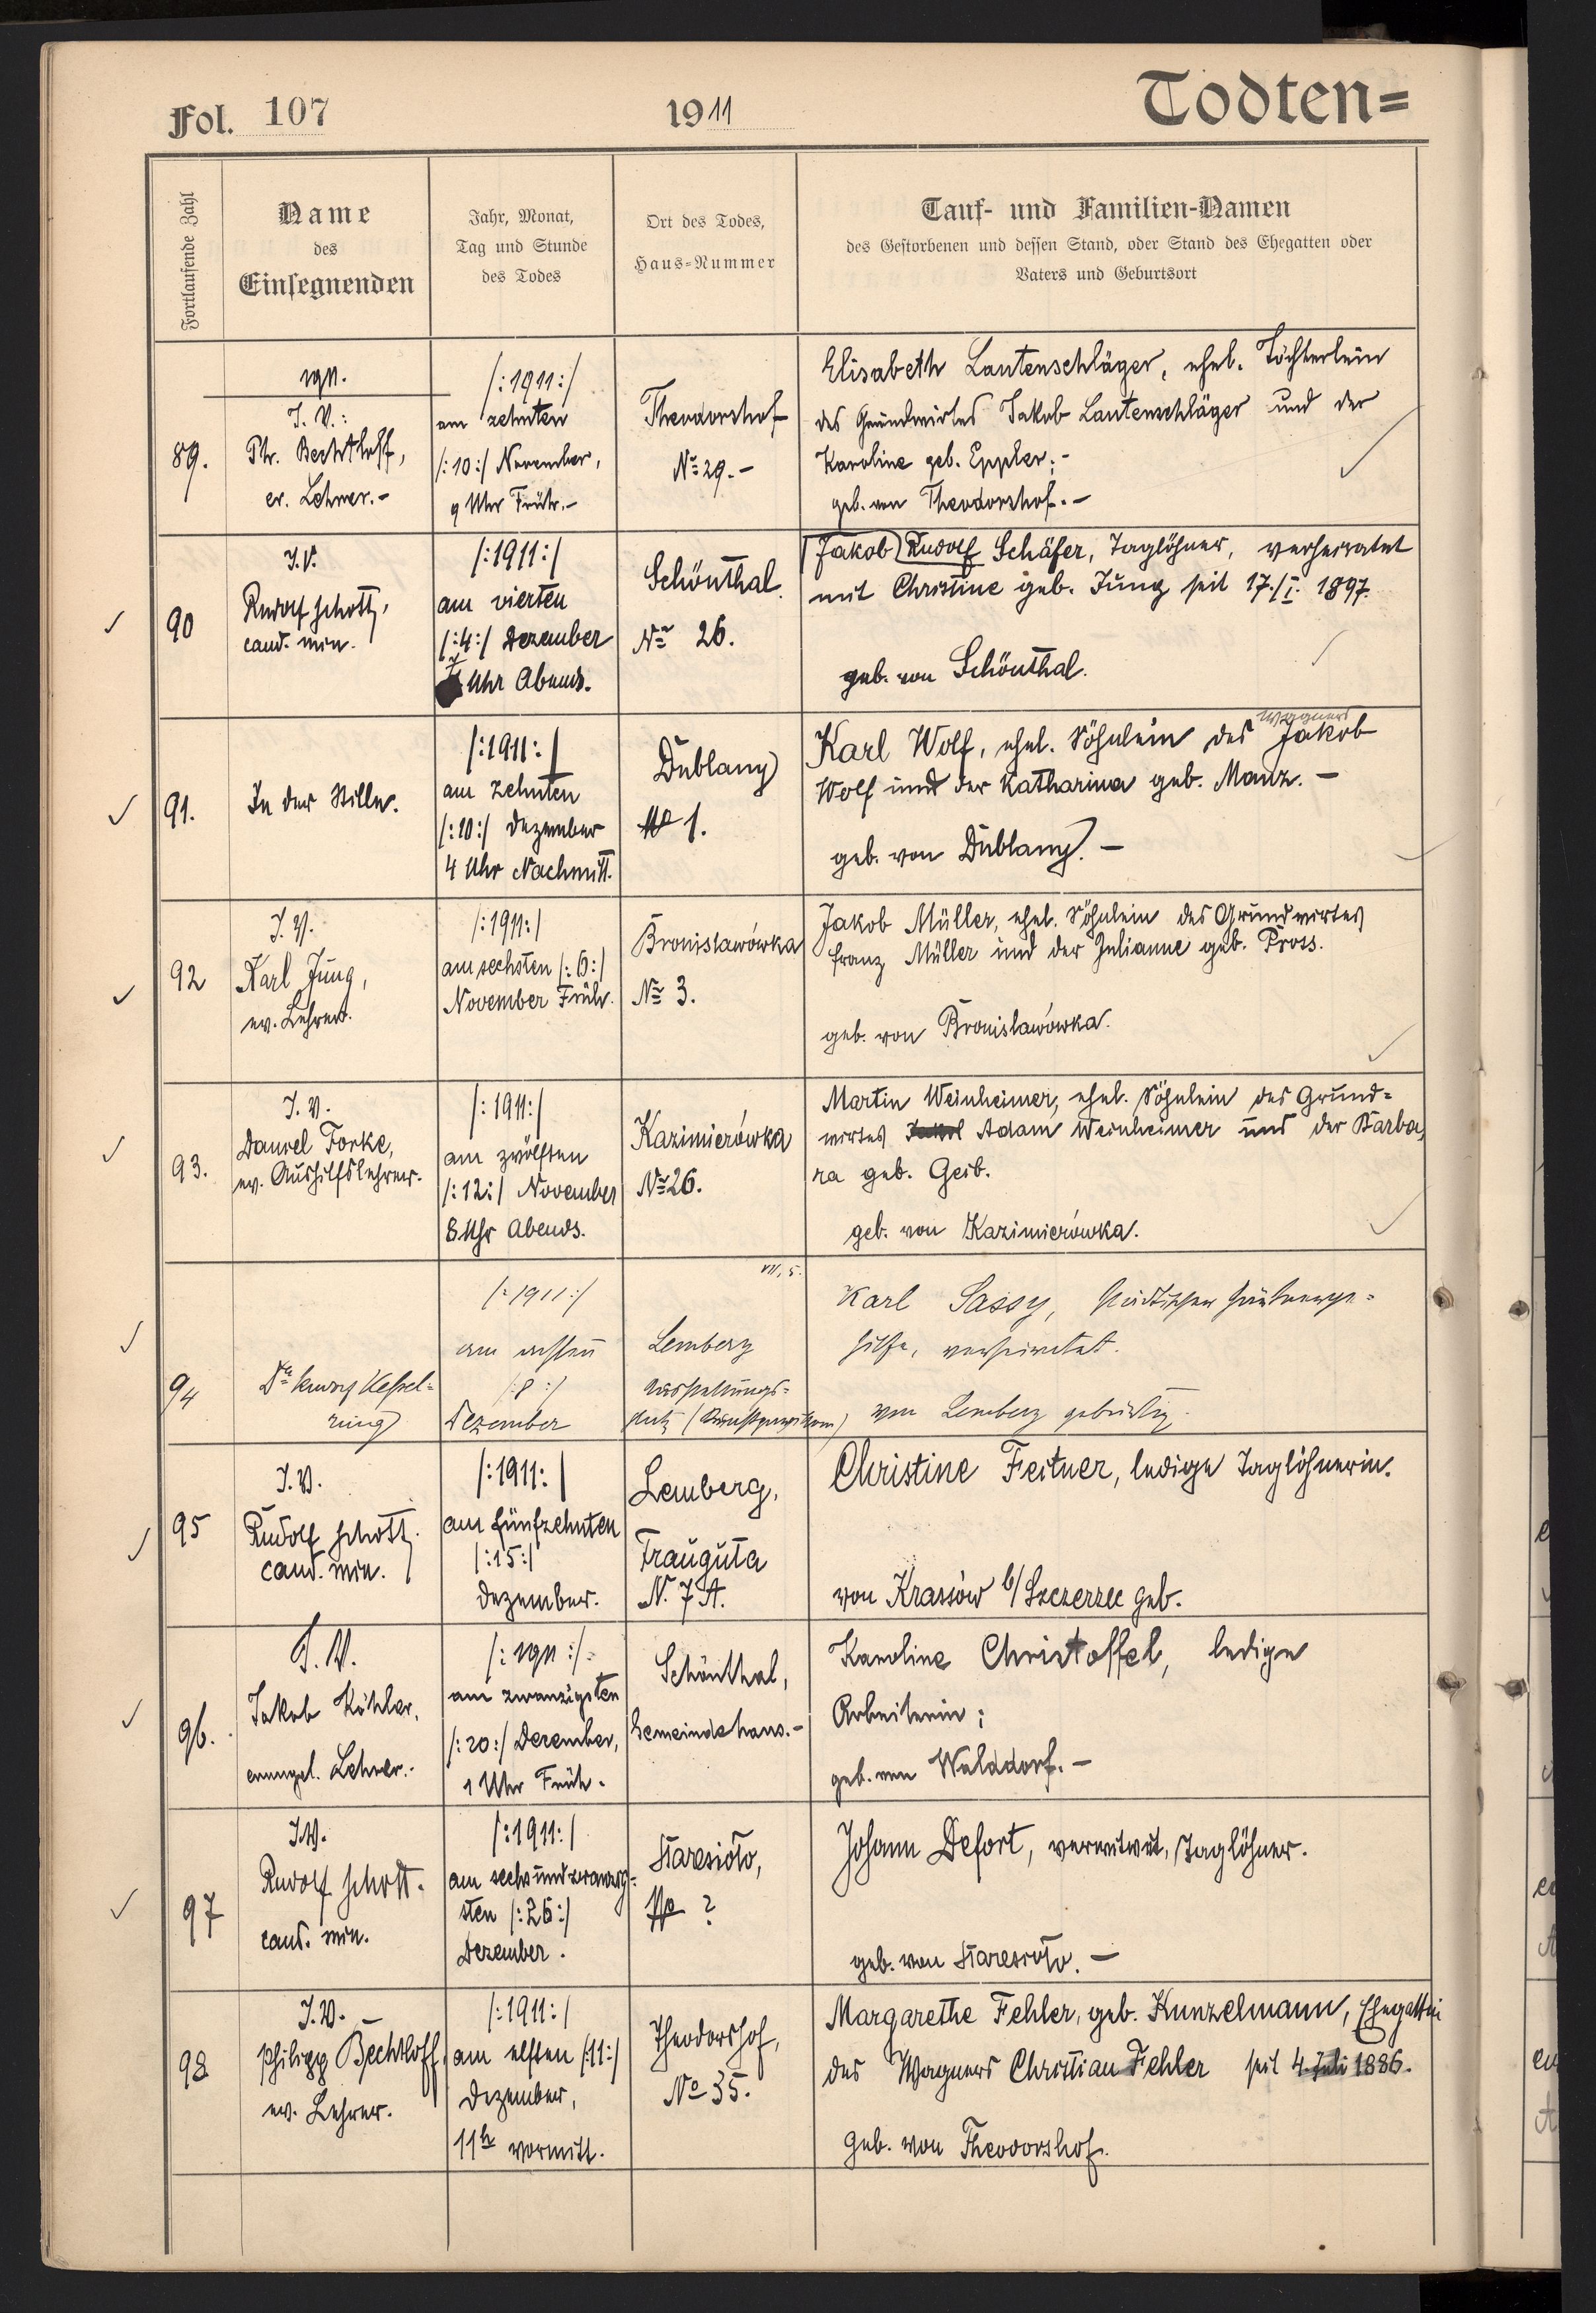 Fol. 107
1911
Todten=
Fortlaufende Zahl
Name
des
Einsegnenden
Jahr, Monat,
Tag und Stunde
des Todes
Ort des Todes,
Haus-Nummer
Tauf- und Familien-Namen
des Gestorbenen und dessen Stand, oder Stand des Ehegatten oder
Vaters und Geburtsort
89.
1911.
I. V.:
Ph. Bechtloff,
ev. Lehrer.-
/:1911:/
am zehnten
/:10:/ November,
9 Uhr Früh.-
Theodorshof
No 29.-
Elisabeth Lautenschläger, ehel. Töchterlein
des Grundwirtes Jakob Lautenschläger und der
Karoline geb. Eppler;-
geb. von Theodorshof.-
90
I.V.
Rudolf Schott,
cand. min.
/:1911:/
am vierten
/:4:/ Dezember
Uhr Abends.
Schönthal
No 26.
Jakob Rudolf Schäfer, Taglöhner, verheiratet
mit Christine geb. Jung seit 17./I. 1897.
geb. von Schönthal.
91.
In der Stille.
/:1911:/
am zehnten
/:10:/ Dezember
4 Uhr Nachmitt.
Dublany
No 1.
Wagners
Karl Wolf, ehel. Söhnlein des Jakob
Wolf und der Katharina geb. Manz.-
geb. von Dublany.-
92
I. V.
Karl Jung,
ev. Lehrer.
/:1911:/
am sechsten /:6:/
November Früh.
Bronislawówka
No 3.
Jakob Müller, ehel. Söhnlein des Grundwirtes
Franz Müller und der Julianne geb. Pross.
geb. von Bronislawówka.
93.
I. V.
Daniel Forke,
ev. Aushilfslehrer.
/:1911:/
am zwölften
/:12:/ November
8 Uhr Abends.
Kazimierówka
No 26.
Martin Weinheimer, ehel. Söhnlein des Grund=
wirtes Adam Weinheimer und der Barba,
ra geb. Geib.
geb. von Kazimierówka.
94
Dr. Kessel=
ring
/:1911:/
am achten
/:8:/
Dezember
VII, 5.
Lemberg
Ausstellungs=
platz
Karl Sassy, städtischer
hilfe, verheiratet.
von Lemberg gebürtig.
95
I.V.
Rudolf Schott
cand. min.
/:1911:/
am fünfzehnten
/:15:/
Dezember.
Lemberg,
Trauguta
N. 7 A.
Christine Feitner, ledige Taglöhnerin.
von Krassów b/Szczerzec geb.
96.
I. V.
Jakob Köhler,
evangel. Lehrer.-
/:1911:/-
am zwanzigsten
/:20:/ Dezember,
1 Uhr Früh.
Schönthal,
Gemeindehaus.-
Karoline Christoffel, ledige
Arbeiterin;
geb. von Walddorf.-
97
I.V.
Rudolf Schott.
cand. min.
/:1911:/
am sechsundzwanzig=
sten /:26:/
Dezember.
Staresioło,
No ?
Johann Defort, verwitwet, Taglöhner.
geb. von Staresioło.-
98
I.V.
Philipp Bechtloff,
ev. Lehrer.
/:1911:/
am elften /:11:/
Dezember,
11h vormitt.
Theodorshof,
No 35.
Margarethe Fehler, geb. Kunzelmann, Ehegattin
des Wagners Christian Fehler seit 4. Juli 1886.
geb. von Theodorshof.